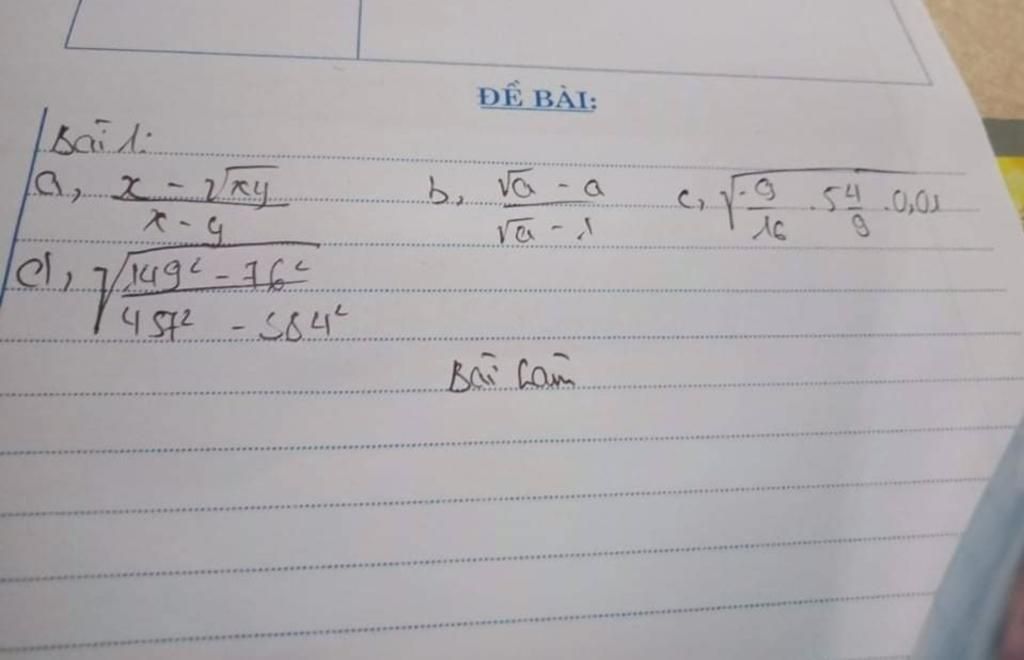 ĐỀ BÀI:
Bài 1:
a, \frac{x - 2\sqrt{xy}}{x - y} b, \frac{\sqrt{a} - a}{\sqrt{a} - 1} c, \sqrt{\frac{-9}{16} . 5\frac{4}{9} . 0,01}
d, \sqrt{\frac{149² - 76²}{457² - 384²}}
Bài làm